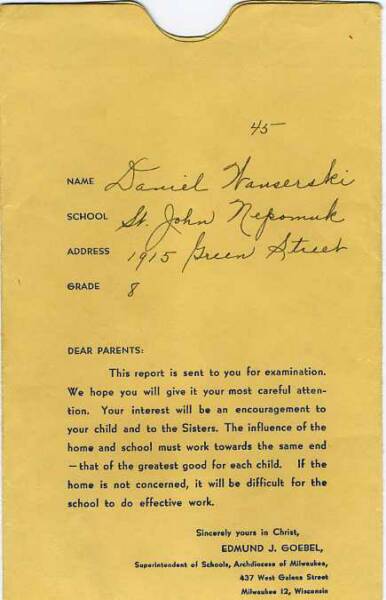 45
NAME Daniel Wanserski
SCHOOL St. John Nepomuk
ADDRESS 1915 Green Street
GRADE 8
DEAR PARENTS:
This report is sent to you for examination.
We hope you will give it your most careful atten-
tion. Your interest will be an encouragement to
your child and to the Sisters. The influence of the
home and school must work towards the same end
—that of the greatest good for each child. If the
home is not concerned, it will be difficult for the
school to do effective work.
Sincerely yours in Christ,
EDMUND J. GOEBEL,
Superintendent of Schools, Archdiocese of Milwaukee,
437 West Galena Street
Milwaukee 12, Wisconsin